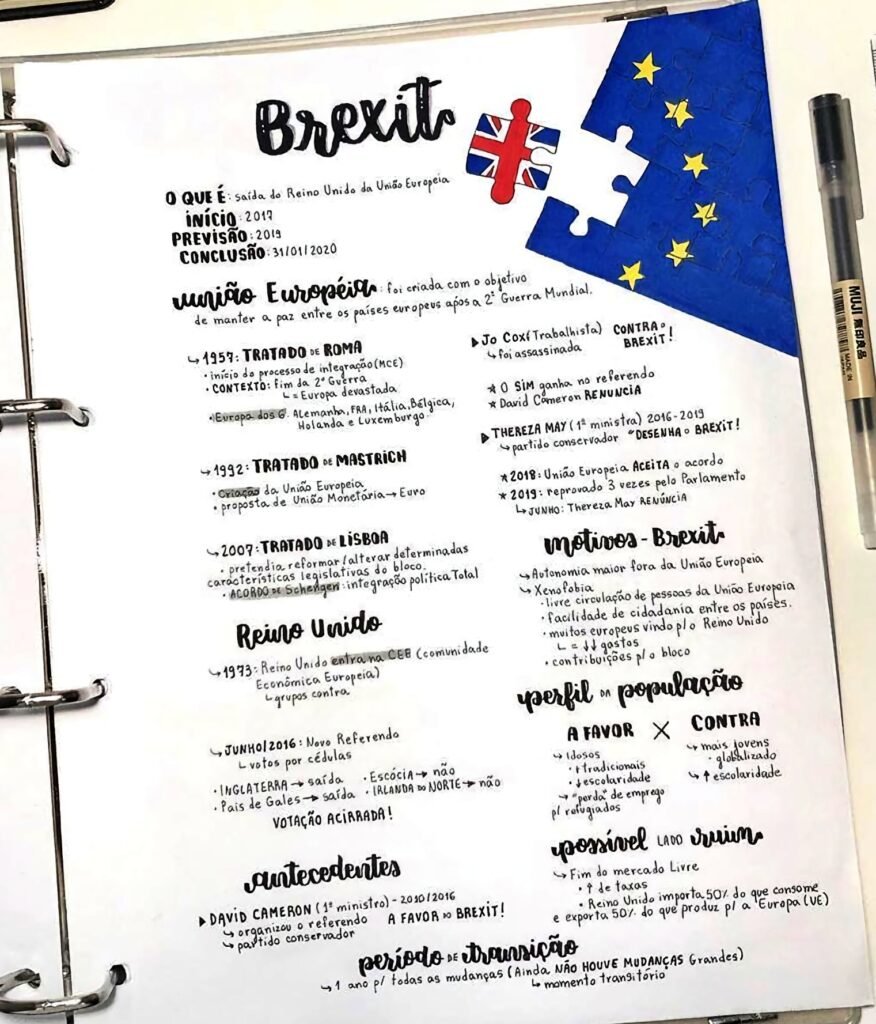 Brexit
O QUE É: saída do Reino Unido da União Europeia
INÍCIO: 2017
PREVISÃO: 2019
CONCLUSÃO: 31/01/2020
união Européia: foi criada com o objetivo
de manter a paz entre os países europeus após a 2ª Guerra Mundial.
↳ 1957: TRATADO DE ROMA
• início do processo de integração (MCE)
• CONTEXTO: fim da 2ª Guerra
↳ = Europa devastada
• Europa dos 6: Alemanha, FRA, Itália, Bélgica,
Holanda e Luxemburgo.
↳ 1992: TRATADO DE MASTRICH
• Criação da União Europeia
• proposta de União Monetária → Euro
↳ 2007: TRATADO DE LISBOA
• pretendia reformar/alterar determinadas
características legislativas do bloco.
• ACORDO DE Schengen: integração política Total
Reino Unido
↳ 1973: Reino Unido entra na CEE (comunidade
Econômica Europeia)
↳ grupos contra
↳ JUNHO/2016: Novo Referendo
↳ votos por cédulas
• INGLATERRA → saída • Escócia → não
• País de Gales → saída • IRLANDA DO NORTE → não
VOTAÇÃO ACIRRADA!
antecedentes
▶ DAVID CAMERON (1º ministro) - 2010/2016
↳ organizou o referendo A FAVOR DO BREXIT!
↳ partido conservador
▶ JO COX (Trabalhista) CONTRA O
↳ foi assassinada BREXIT!
★ O SIM ganha no referendo
★ David Cameron RENUNCIA
▶ THEREZA MAY (1ª ministra) 2016-2019
↳ partido conservador "DESENHA O BREXIT!
★ 2018: União Europeia ACEITA o acordo
★ 2019: reprovado 3 vezes pelo Parlamento
↳ JUNHO: Thereza May RENÚNCIA
motivos - Brexit
↳ Autonomia maior fora da União Europeia
↳ Xenofobia
• livre circulação de pessoas da União Europeia
• facilidade de cidadania entre os países.
• muitos europeus vindo p/ o Reino Unido
↳ = ↓↓ gastos
• contribuições p/ o bloco
perfil DA população
A FAVOR X CONTRA
↳ Idosos
• + tradicionais
• ↓ escolaridade
↳ "perda" de emprego
p/ refugiados
↳ mais jovens
• globalizado
↳ ↑ escolaridade
possível LADO ruim
↳ Fim do mercado Livre
• ↑ de taxas
• Reino Unido importa 50% do que consome
e exporta 50% do que produz p/ a Europa (UE)
período DE transição
↳ 1 ano p/ todas as mudanças (Ainda NÃO HOUVE MUDANÇAS Grandes)
↳ momento transitório
MUJI 無印良品
MADE IN JAPAN